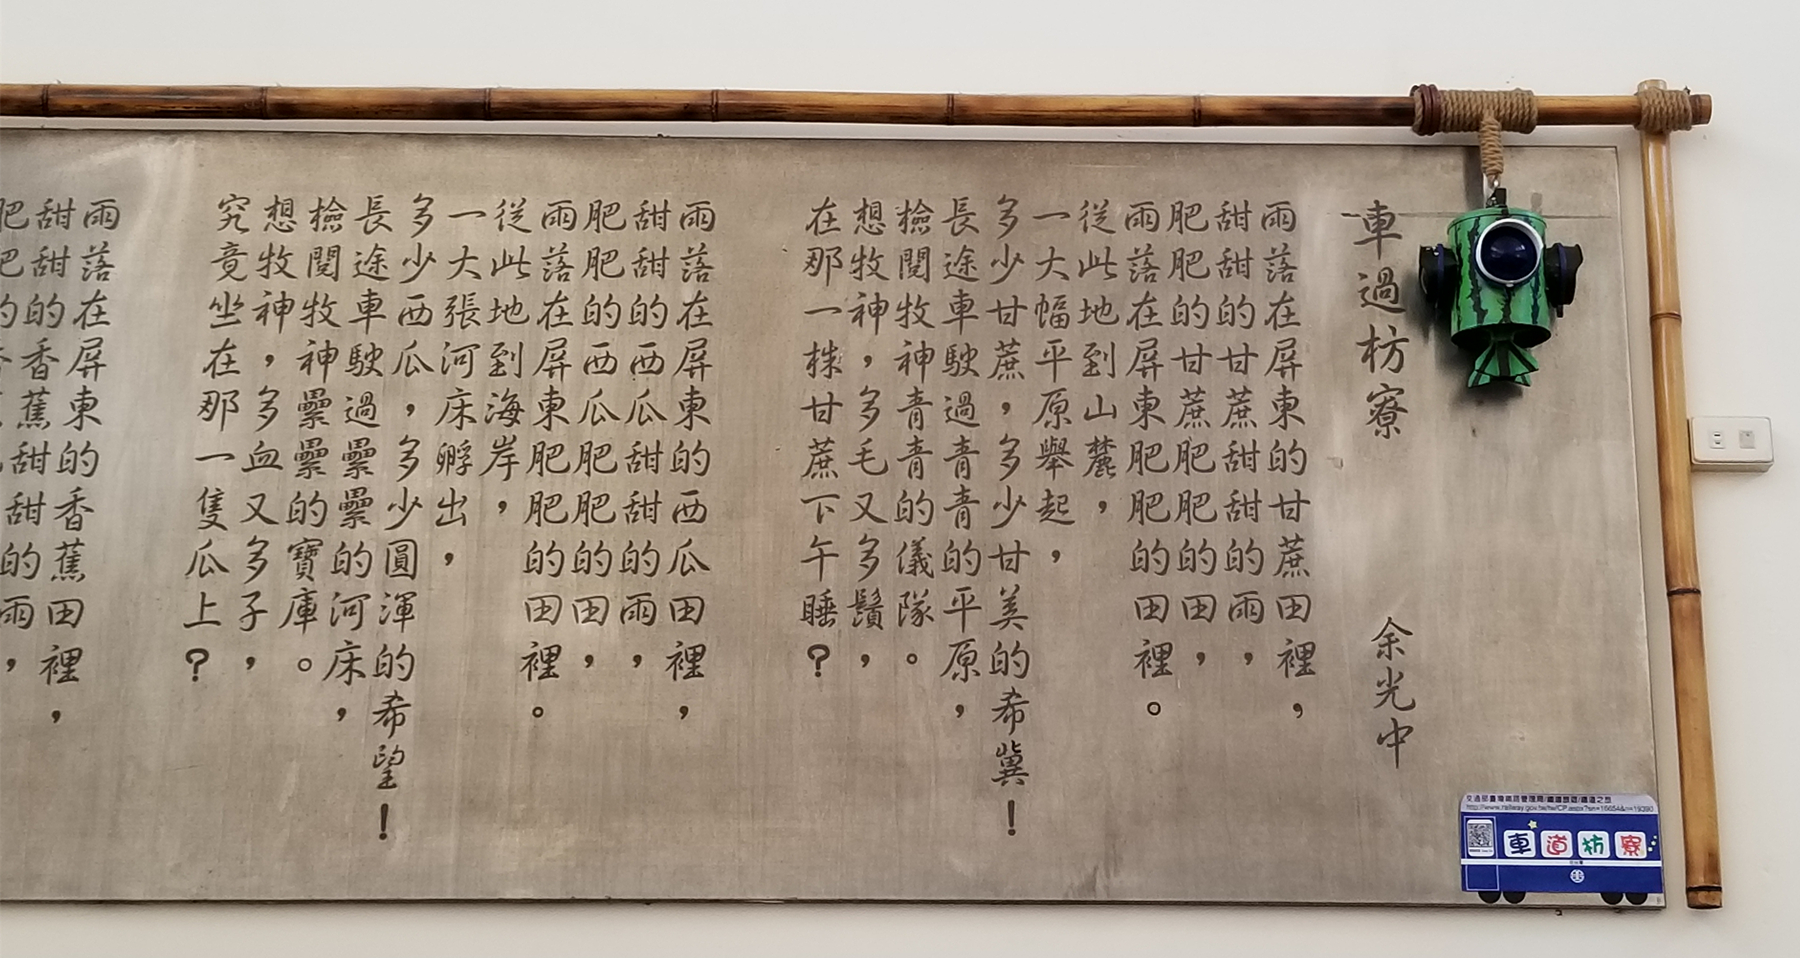 車過枋寮 余光中
雨落在屏東的甘蔗田裡，
甜甜的甘蔗甜甜的雨，
肥肥的甘蔗肥肥的田，
雨落在屏東肥肥的田裡。
從此地到山麓，
一大幅平原舉起，
多少甘蔗，多少甘美的希冀！
長途車駛過青青的平原，
檢閱牧神青青的儀隊。
想牧神，多毛又多鬚，
在那一株甘蔗下午睡？
雨落在屏東的西瓜田裡，
甜甜的西瓜甜甜的雨，
肥肥的西瓜肥肥的田，
雨落在屏東肥肥的田裡。
從此地到海岸，
一大張河床孵出，
多少西瓜，多少圓渾的希望！
長途車駛過纍纍的河床，
檢閱牧神纍纍的寶庫。
想牧神，多血又多子，
究竟坐在那一隻瓜上？
雨落在屏東的香蕉田裡，
甜甜的香蕉甜甜的雨，
交通部臺灣鐵路管理局/鐵道旅遊/鐵道之旅
車道枋寮